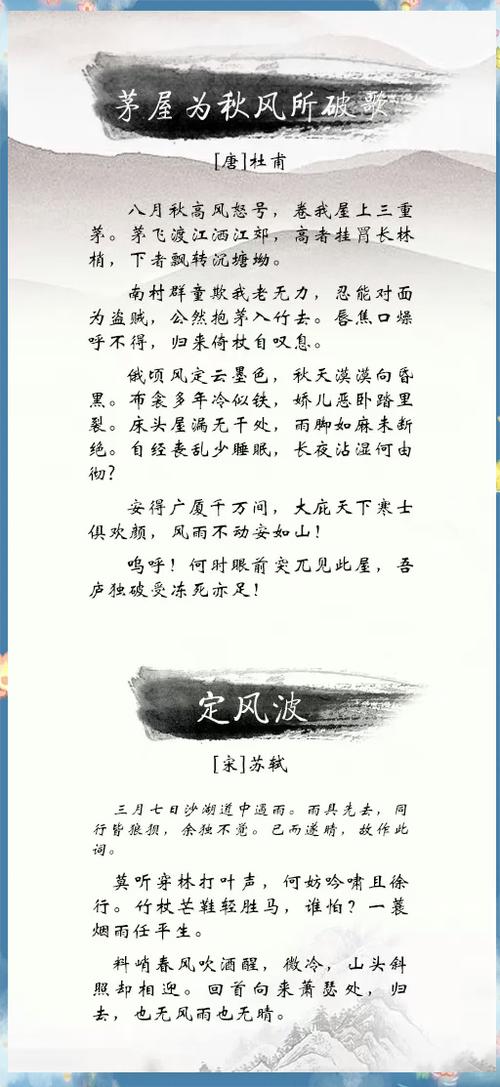 茅屋为秋风所破歌
[唐]杜甫
八月秋高风怒号，卷我屋上三重
茅。茅飞渡江洒江郊，高者挂罥长林
梢，下者飘转沉塘坳。
南村群童欺我老无力，忍能对面
为盗贼，公然抱茅入竹去。唇焦口燥
呼不得，归来倚杖自叹息。
俄顷风定云墨色，秋天漠漠向昏
黑。布衾多年冷似铁，娇儿恶卧踏里
裂。床头屋漏无干处，雨脚如麻未断
绝。自经丧乱少睡眠，长夜沾湿何由
彻？
安得广厦千万间，大庇天下寒士
俱欢颜，风雨不动安如山！
呜呼！何时眼前突兀见此屋，吾
庐独破受冻死亦足！
定风波
[宋]苏轼
三月七日沙湖道中遇雨。雨具先去，同
行皆狼狈，余独不觉。已而遂晴，故作此
词。
莫听穿林打叶声，何妨吟啸且徐
行。竹杖芒鞋轻胜马，谁怕？一蓑
烟雨任平生。
料峭春风吹酒醒，微冷，山头斜
照却相迎。回首向来萧瑟处，归
去，也无风雨也无晴。